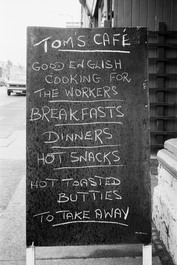 TOM'S CAFÉ
GOOD ENGLISH
COOKING FOR
THE WORKERS
BREAKFASTS
DINNERS
HOT SNACKS
HOT TOASTED
BUTTIES
TO TAKE AWAY